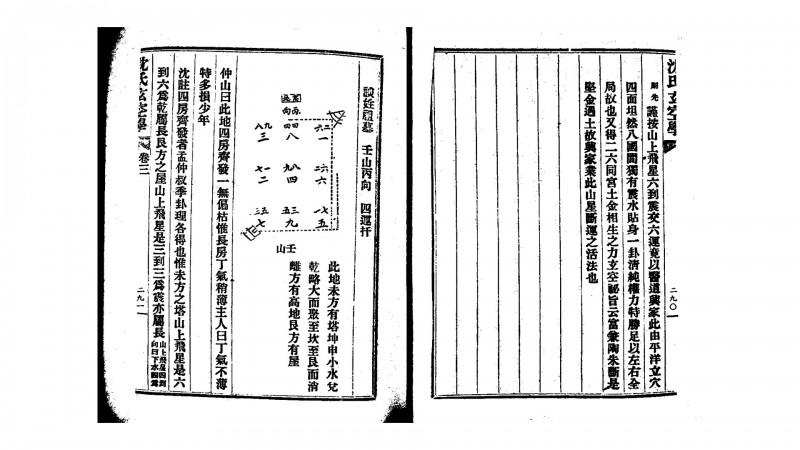 沈氏玄空學
二九〇
則先 謹按山上飛星六到震交六運竟以醫道興家此由平洋立穴
四面坦然八國間獨有震水貼身一卦清純權力特勝足以左右全
局故也又得二六同宮土金相生之力玄空祕旨云富並陶朱斷是
堅金遇土故興家業此山星斷運之活法也
設姓祖墓 壬山丙向 四運扞
向丙
八九 四四 六二
三 八 一
九八 二六
二 四 六
五三 一七
七 九 五
壬山
此地未方有塔坤申小水兌
乾略大而聚至坎至艮而消
離方有高地艮方有屋
仲山曰此地四房齊發一無偏枯惟長房丁氣稍薄主人曰丁氣不薄
特多損少年
沈註四房齊發者孟仲叔季卦理各得也惟未方之塔山上飛星是六
到六爲乾屬長艮方之屋山上飛星是三到三爲震亦屬長
山上飛星四到
向曰下水四爲
沈氏玄空學 卷三
二九一